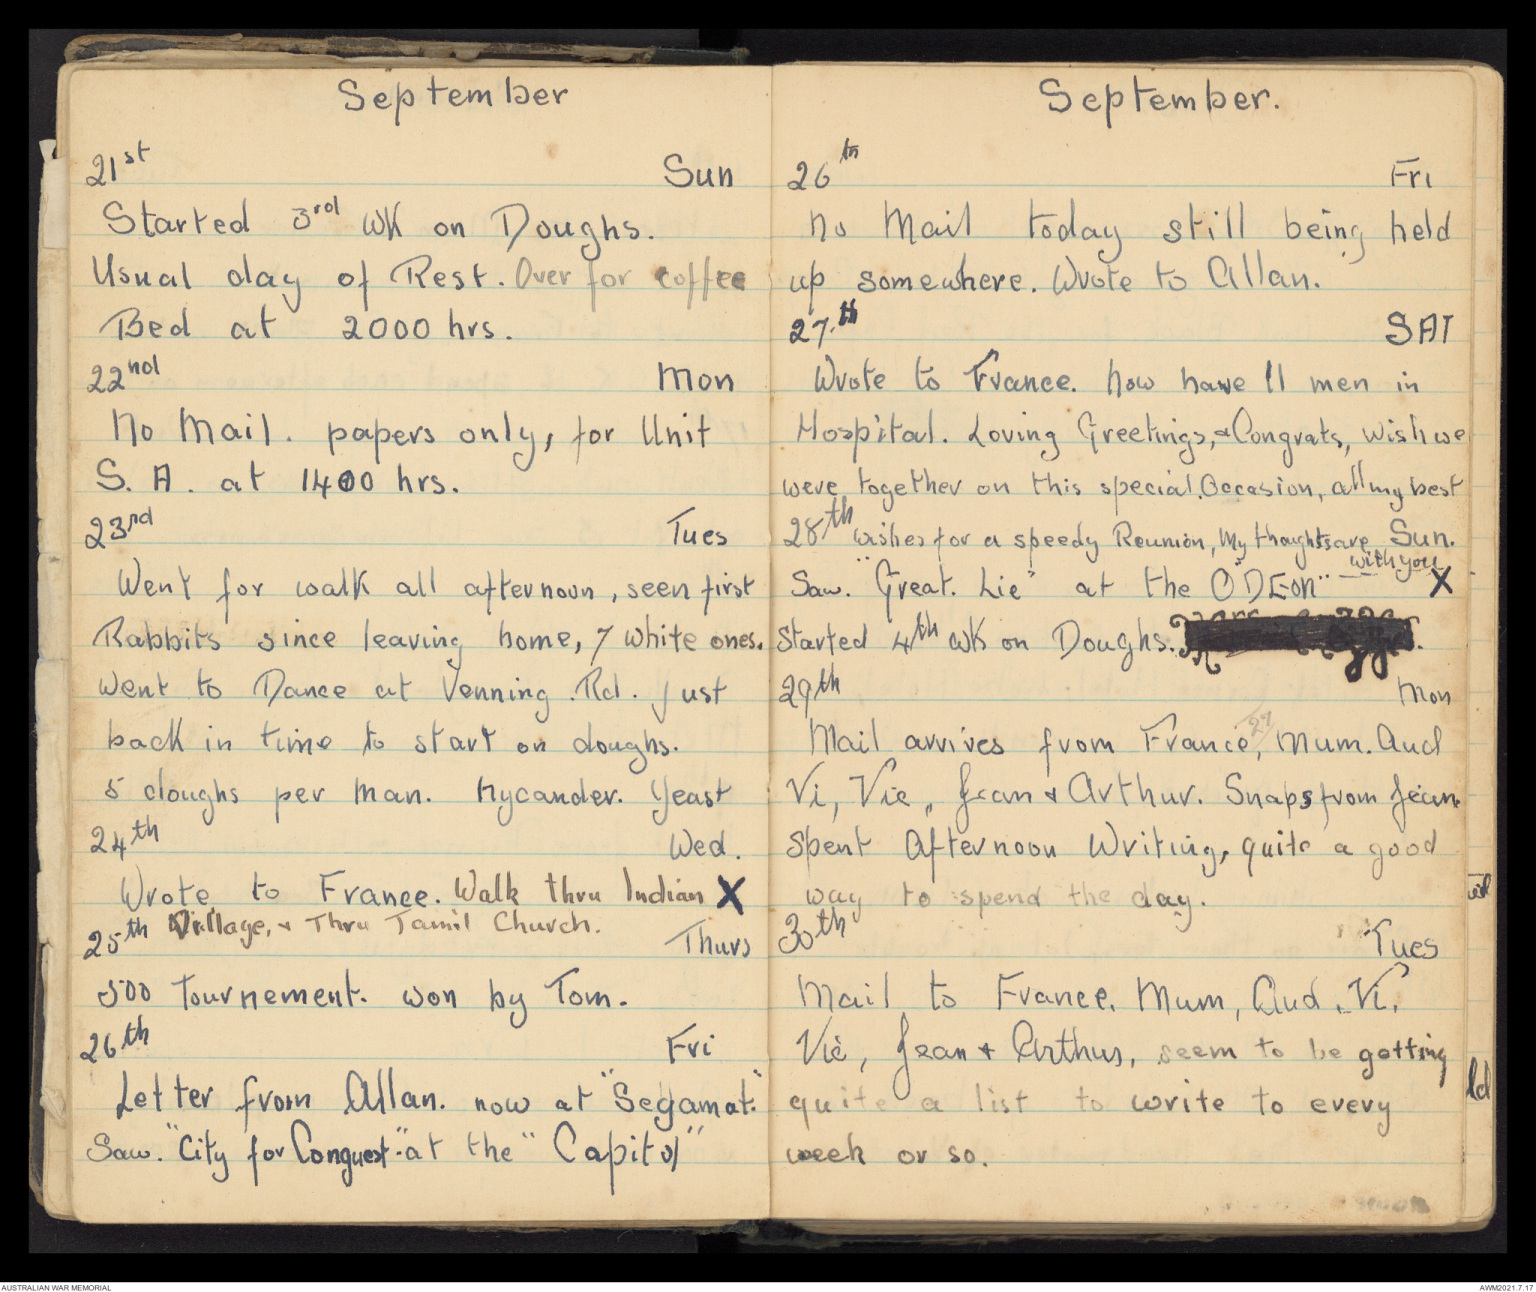 September
21st Sun
Started 3rd WK on Doughs.
Usual day of Rest. Over for coffee
Bed at 2000 hrs.
22nd Mon
No Mail. papers only, for Unit
S. A. at 1400 hrs.
23rd Tues
Went for walk all afternoon, seen first
Rabbits since leaving home, 7 white ones.
Went to Dance at Venning Rd. Just
back in time to start on doughs.
5 doughs per man. Hycander. Yeast
24th Wed.
Wrote to France. Walk thru Indian X
Village, & Thru Tamil Church.
25th Thurs
500 Tournement. won by Tom.
26th Fri
Letter from Allan. now at "Segamat."
Saw. "City for Conquest" at the "Capitol"
September.
26th Fri
No Mail today still being held
up somewhere. Wrote to Allan.
27.th SAT
Wrote to France. Now have 11 men in
Hospital. Loving Greetings, & Congrats, wish we
were together on this special Occasion, all my best
28th wishes for a speedy Reunion, My thoughts are Sun.
with you
Saw. "Great. Lie" at the O"DEON" X
Started 4th WK on Doughs.
29th Mon
Mail arrives from France, Mum. Aud
27
Vi, Vie, Jean & Arthur. Snaps from Jean
Spent Afternoon Writing, quite a good
way to spend the day.
30th Tues
Mail to France. Mum, Aud. Vi.
Vie, Jean & Arthur, seem to be getting
quite a list to write to every
week or so.
ld
AUSTRALIAN WAR MEMORIAL
AWM2021.7.17